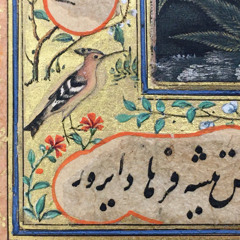 تیشه فرهاد ایرور